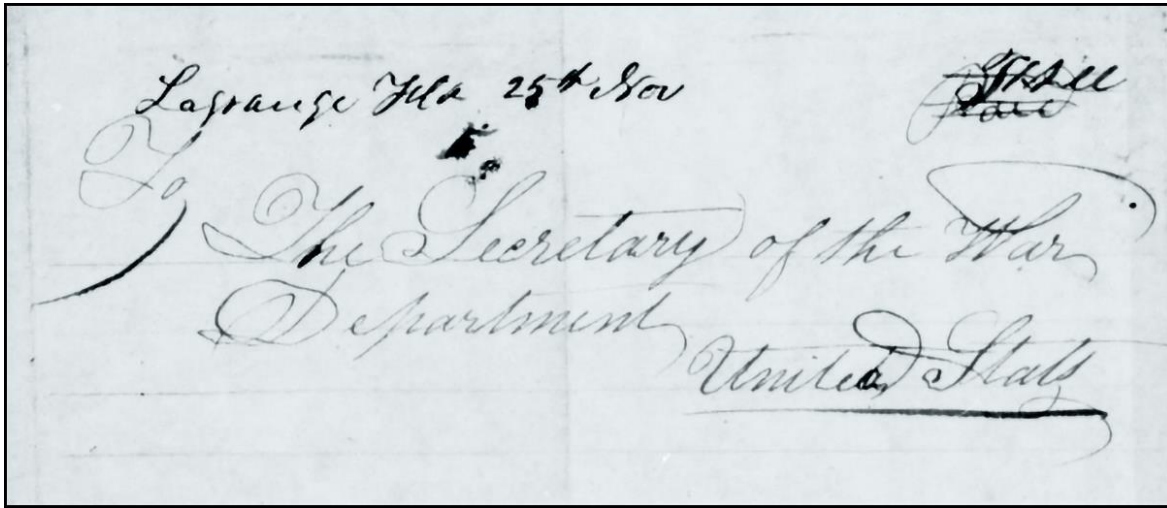 Lagrange Fla 25th Nov
To
The Secretary of the War
Department
United States